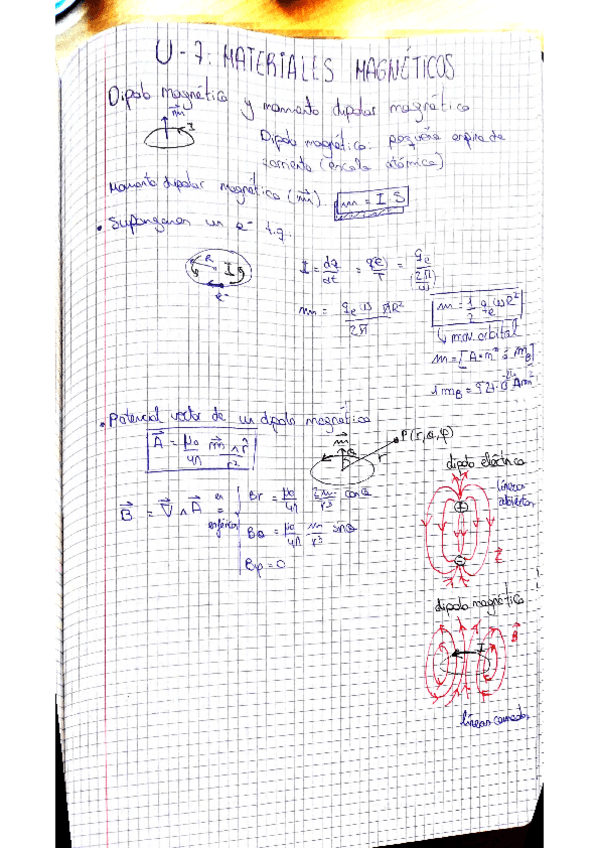 U - 7: MATERIALES MAGNÉTICOS
Dipolo magnético y momento dipolar magnético
m⃗
I
Dipolo magnético: pequeña espira de
corriente (escala atómica)
Momento dipolar magnético (m⃗): m = I S
• Supongamos un e⁻ t.q.
R
I
e⁻
I = dq/dt = qe/T = qe/(2π/ω)
m = qe ω πR²/2π
m = 1/2 qe ω R²
↳ mov. orbital
m = [A·m² ó mB]
1 mB = 9'21·10 Am²
• Potencial vector de un dipolo magnético
A⃗ = μ0/4π m⃗ ∧ r̂/r²
m⃗
θ
r
P(r, θ, φ)
B⃗ = ∇⃗ ∧ A⃗ = en esféricas
Br = μ0/4π 2m/r³ cosθ
Bθ = μ0/4π m/r³ senθ
Bφ = 0
dipolo eléctrico
líneas
abiertas
+
-
E⃗
dipolo magnético
I
B⃗
líneas cerradas